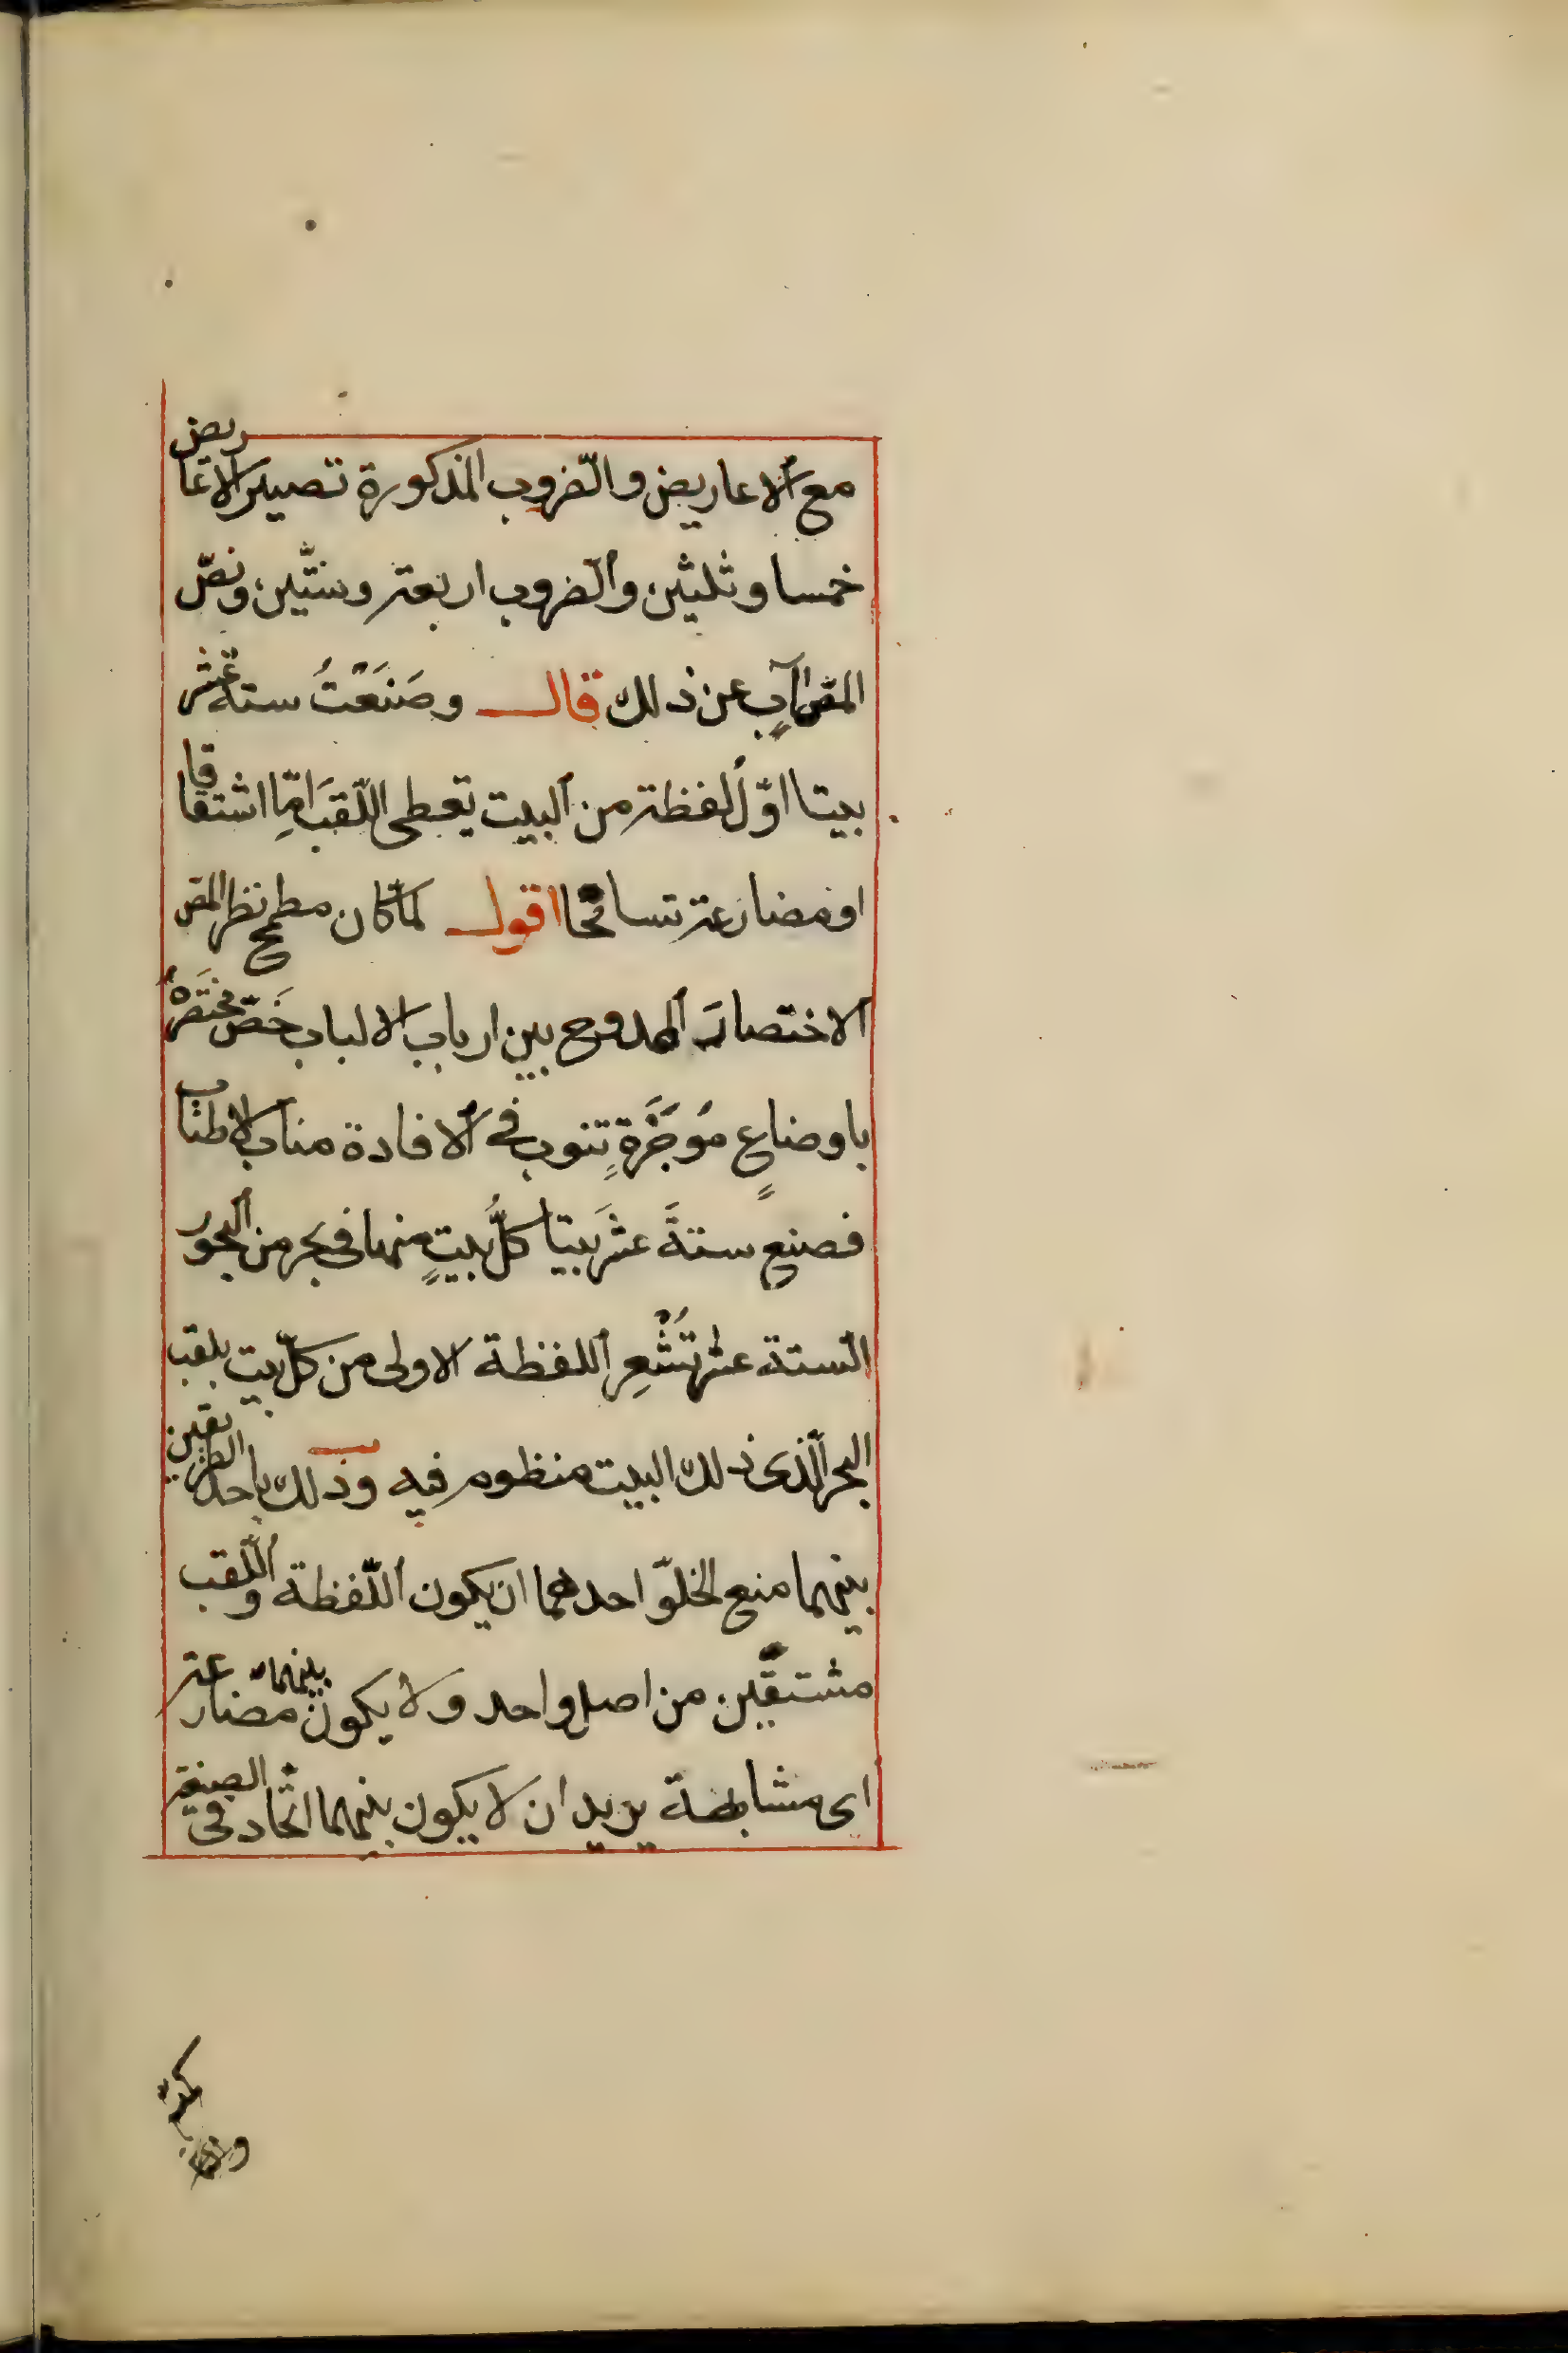 مع الاعاريض والضروب المذكورة تصير الاعاريض
خمسا وثلثين والضروب اربعة وستّين ونصّ
المصَ آبٍ عن ذلك قال وصَنَعْتُ ستة عشر
بيتا اوّل لفظة من البيت يعطى اللّقبَ امّا اشتقاقا
او مضارعة تسامحًا اقول لمّا كان مطمح نظر المصَ
الاختصارَ الممدوح بين ارباب الالباب خَصّ مختصَرهُ
باوضاعٍ مُوجَزَةٍ تنوب فى الافادة مناب الاطناب
فصنع ستةَ عشرَ بيتا كلُّ بيتٍ منها فى بحر من البحور
الستة عشر تُشْعِر اللفظة الاولى من كلّ بيت بلقب
البحر الّذى ذلك البيت منظوم فيه وذلك باحد الطريقين
بينهما منع الخلوّ احدهما ان يكون اللّفظة واللّقب
مشتقّين من اصل واحد ولا يكون بينهما مضارعة
اى مشابهة يريد ان لا يكون بينهما اتّحاد فى الصيغة